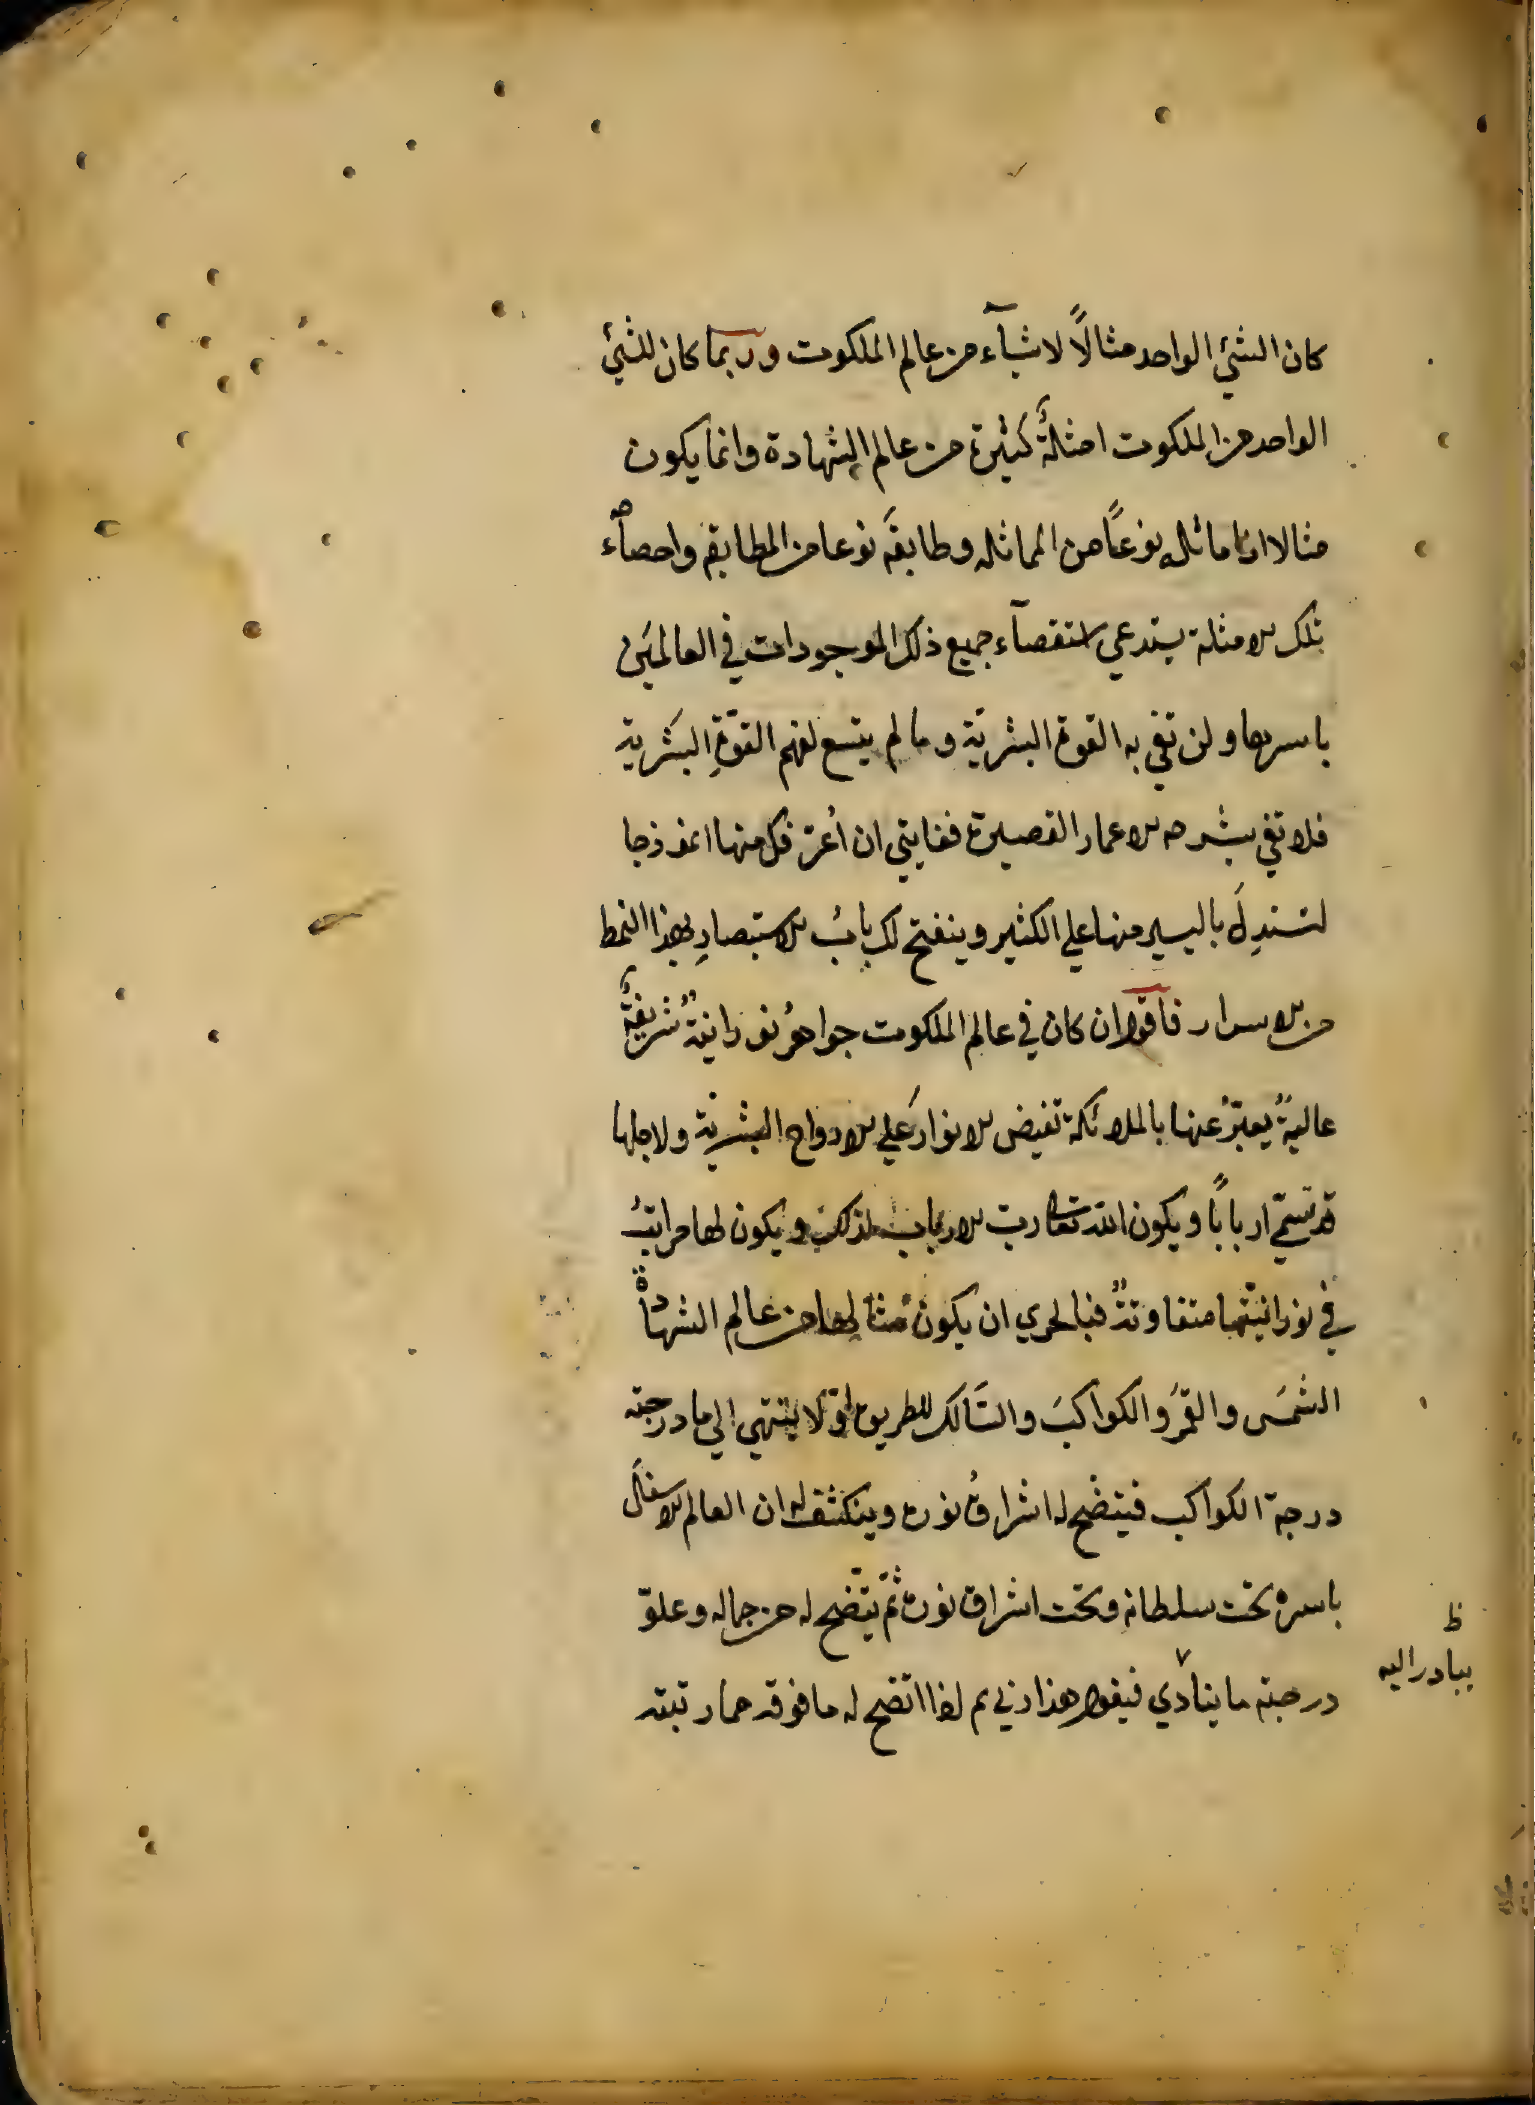 كان الشئ الواحد مثالاً لاشيآء من عالم الملكوت وربما كان للشئ
الواحد من الملكوت امثلةٌ كثيرة من عالم الشهادة وانما يكون
مثالا اذا ماثل نوعًا من المماثله وطابقَه نوعا من المطابقه واحصآء
تلك الامثلة يستدعي استقصآء جميع ذلك الموجودات في العالمَين
باسرها ولن تفي به القوة البشريّة وما لم يتسع لفهم القوّةِ البشَرية
فلا تفي بشرحه الاعمار القصيرة فغايتي ان أعرّفك منها انموذجا
لتستدِلَ باليسير منها علي الكثير وينفتح لك بابُ الاستبصارِ بهذا النمط
من الاسرار فاقول ان كان في عالم الملكوت جواهرُ نورانيةٌ شريفةٌ
عاليةٌ يعبّرُ عنها بالملائكة تفيض الانوارَ علي الارواح البشريّة ولاجلها
قد تسمّي اربابًا ويكون الله تعالى ربّ الارباب لذلك ويكون لها مراتبُ
في نورانيّتها متفاوتةٌ فبالحري ان يكون مثالها من عالم الشهادة
الشمسَ والقمرَ والكواكبَ والسّالك للطريق اوّلا ينتهي الي ما درجته
درجة الكواكب فيتضح له اشراقُ نوره وينكشف له ان العالم الاسفلَ
باسره تحت سلطانه وتحت اشراق نوره ثمّ يتّضح له من جماله وعلوّ
درجته ما ينادي فيقول هذا ربي ثم اذا اتضح له ما فوقه مما رتبته
ظ
يبادر اليه